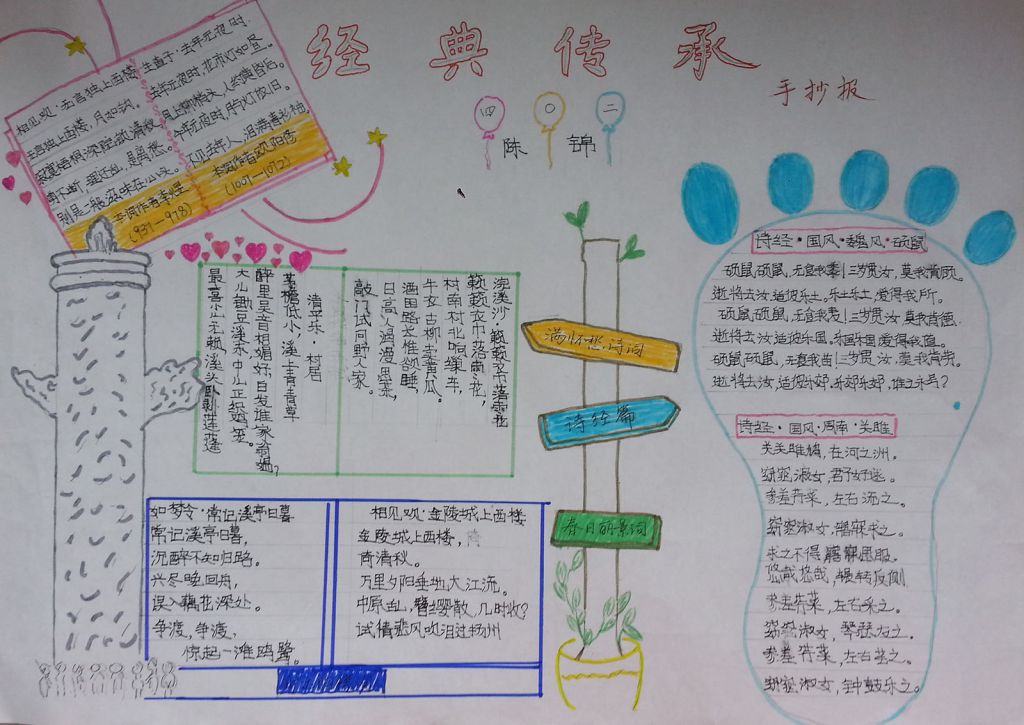 经典传承
手抄报
四〇二
陈锦
相见欢·无言独上西楼
无言独上西楼，月如钩。
寂寞梧桐深院锁清秋
剪不断，理还乱，是离愁。
别是一般滋味在心头。
本词作者李煜
(937—978)
生查子·去年元夜时
去年元夜时，花市灯如昼。
月上柳梢头，人约黄昏后。
今年元夜时，月与灯依旧。
不见去年人，泪满春衫袖
本词作者欧阳修
(1007—1072)
浣溪沙·簌簌衣巾落枣花
簌簌衣巾落枣花，
村南村北响缫车，
牛衣古柳卖黄瓜。
酒困路长惟欲睡，
日高人渴漫思茶，
敲门试问野人家。
清平乐·村居
茅檐低小，溪上青青草
醉里吴音相媚好，白发谁家翁媪？
大儿锄豆溪东，中儿正织鸡笼。
最喜小儿无赖，溪头卧剥莲蓬
如梦令·常记溪亭日暮
常记溪亭日暮，
沉醉不知归路。
兴尽晚回舟，
误入藕花深处。
争渡，争渡，
惊起一滩鸥鹭。
相见欢·金陵城上西楼
金陵城上西楼，
倚清秋。
万里夕阳垂地大江流。
中原乱，簪缨散，几时收？
试倩悲风吹泪过扬州
满怀愁诗词
诗经篇
春日丽景词
诗经·国风·魏风·硕鼠
硕鼠硕鼠，无食我黍！三岁贯汝，莫我肯顾。
逝将去汝，适彼乐土。乐土乐土，爰得我所。
硕鼠，硕鼠，无食我麦！三岁贯汝，莫我肯德。
逝将去汝，适彼乐国，乐国乐国，爰得我直。
硕鼠硕鼠，无食我苗！三岁贯汝，莫我肯劳。
逝将去汝，适彼乐郊，乐郊乐郊，谁之永号？
诗经·国风·周南·关雎
关关雎鸠，在河之洲。
窈窕淑女，君子好逑。
参差荇菜，左右流之。
窈窕淑女，寤寐求之。
求之不得，寤寐思服。
悠哉悠哉，辗转反侧
参差荇菜，左右采之。
窈窕淑女，琴瑟友之。
参差荇菜，左右芼之。
窈窕淑女，钟鼓乐之。